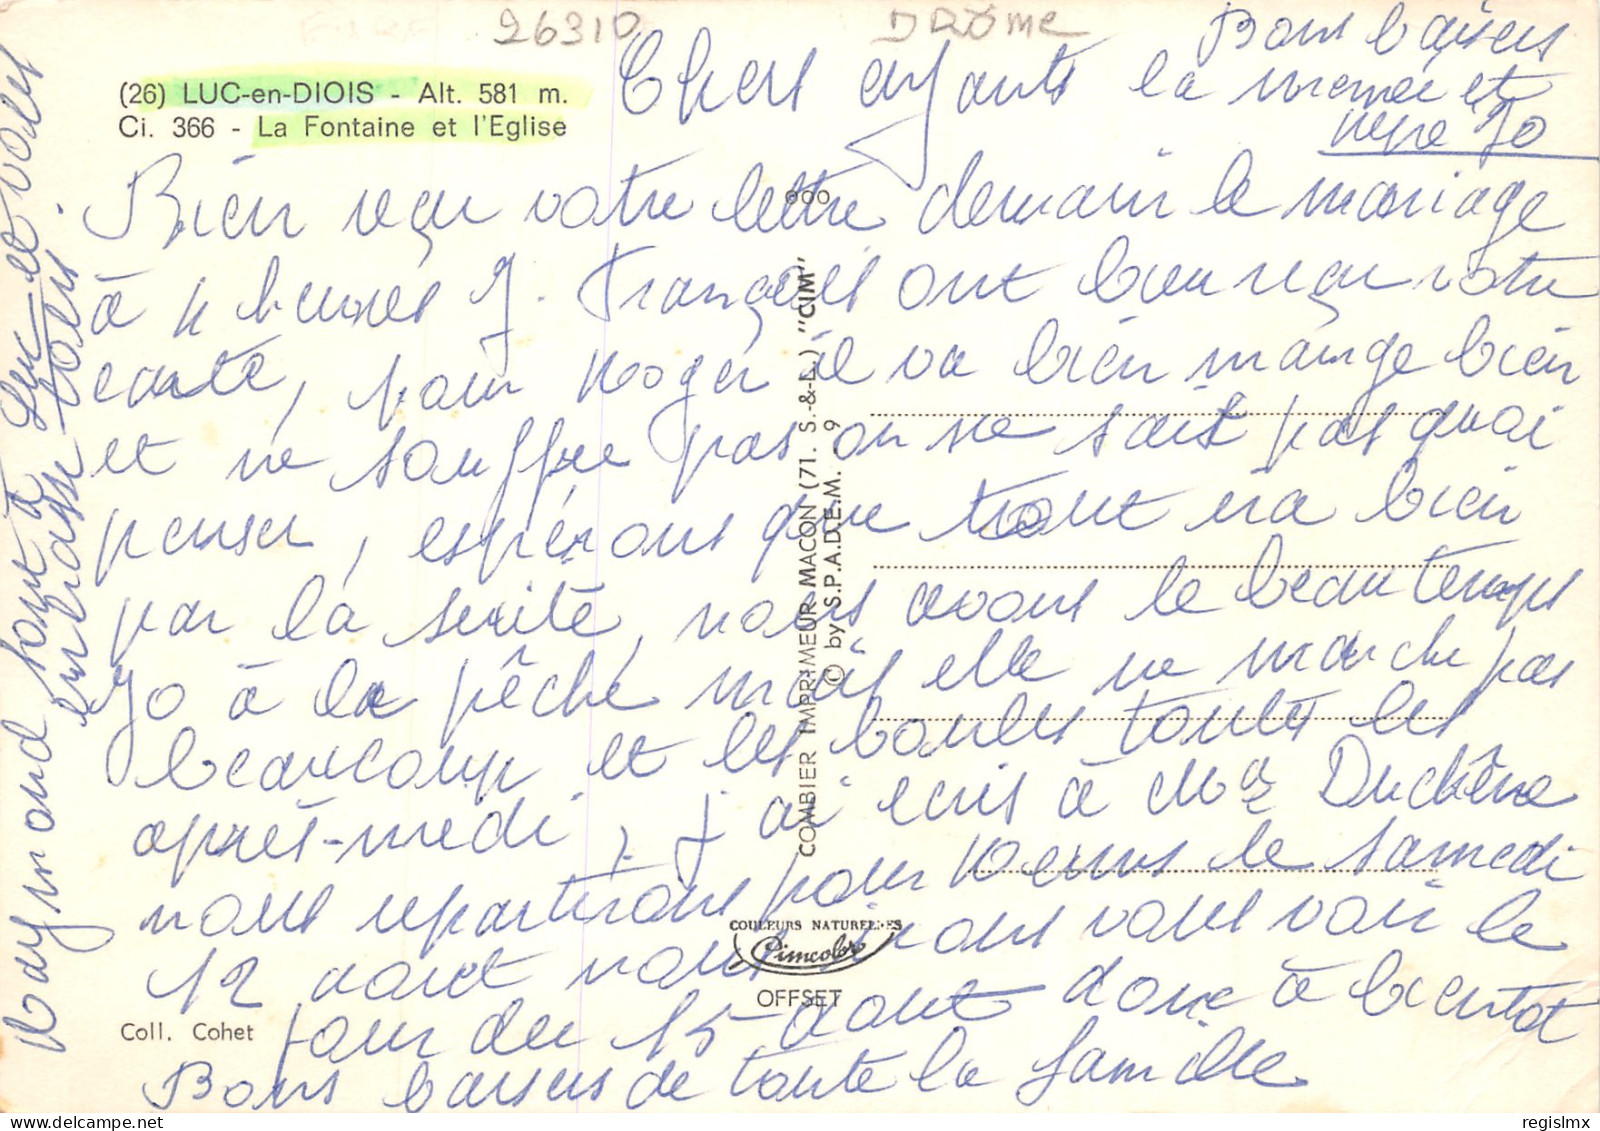 26310
DRÔME
(26) LUC-en-DIOIS - Alt. 581 m.
Ci. 366 - La Fontaine et l'Eglise
Chers enfants
Bien reçu votre lettre demain le mariage
à 4 heures J. François ont bien reçu votre
carte, pour Roger il va bien mange bien
et ne souffre pas on ne sait pas quoi
penser, espérons que tout ira bien
par la suite, nous avons le beau temps
Jo à la pêche mais elle ne marche pas
beaucoup et les boules toutes les
après-medi, j'ai ecris à Duchêne
nous repartirons pour Reims le samedi
12 aout nous irons vous voir le
jour du 15 aout donc à bientot
Bons baisers de toute la famille
Bons baisers
la mémée et
pépé Jo
Raymond sont à Luc et vous
embrasse tous.
ooo
COMBIER IMPRIMEUR MACON (71. S.-&-L.) "CIM"
© by S.P.A.D.E.M. 9
COULEURS NATURELLES
Cimcolor
OFFSET
Coll. Cohet
regislmx